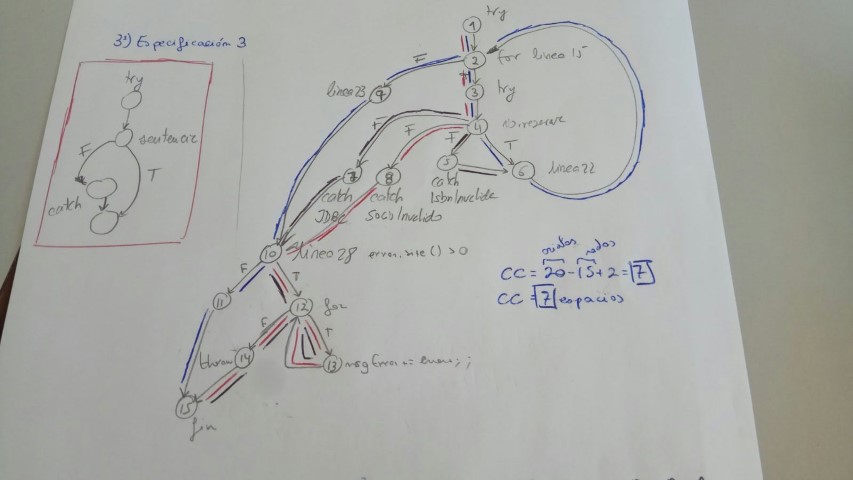 3º) Especificación 3
try
sentencia
F
T
catch
try
1
2
for linea 15
F
T
linea 23
9
3
try
4
F
F
F
T
5
6
linea 22
7
8
catch
JDBC
catch
Socio Invalido
catch
Isbn Invalido
10
linea 28 error.size() > 0
F
T
11
12
for
F
T
throw
14
13
msg Error += error;;
15
fin
aristas nodos
CC = 20 - 15 + 2 = 7
CC = 7 espacios